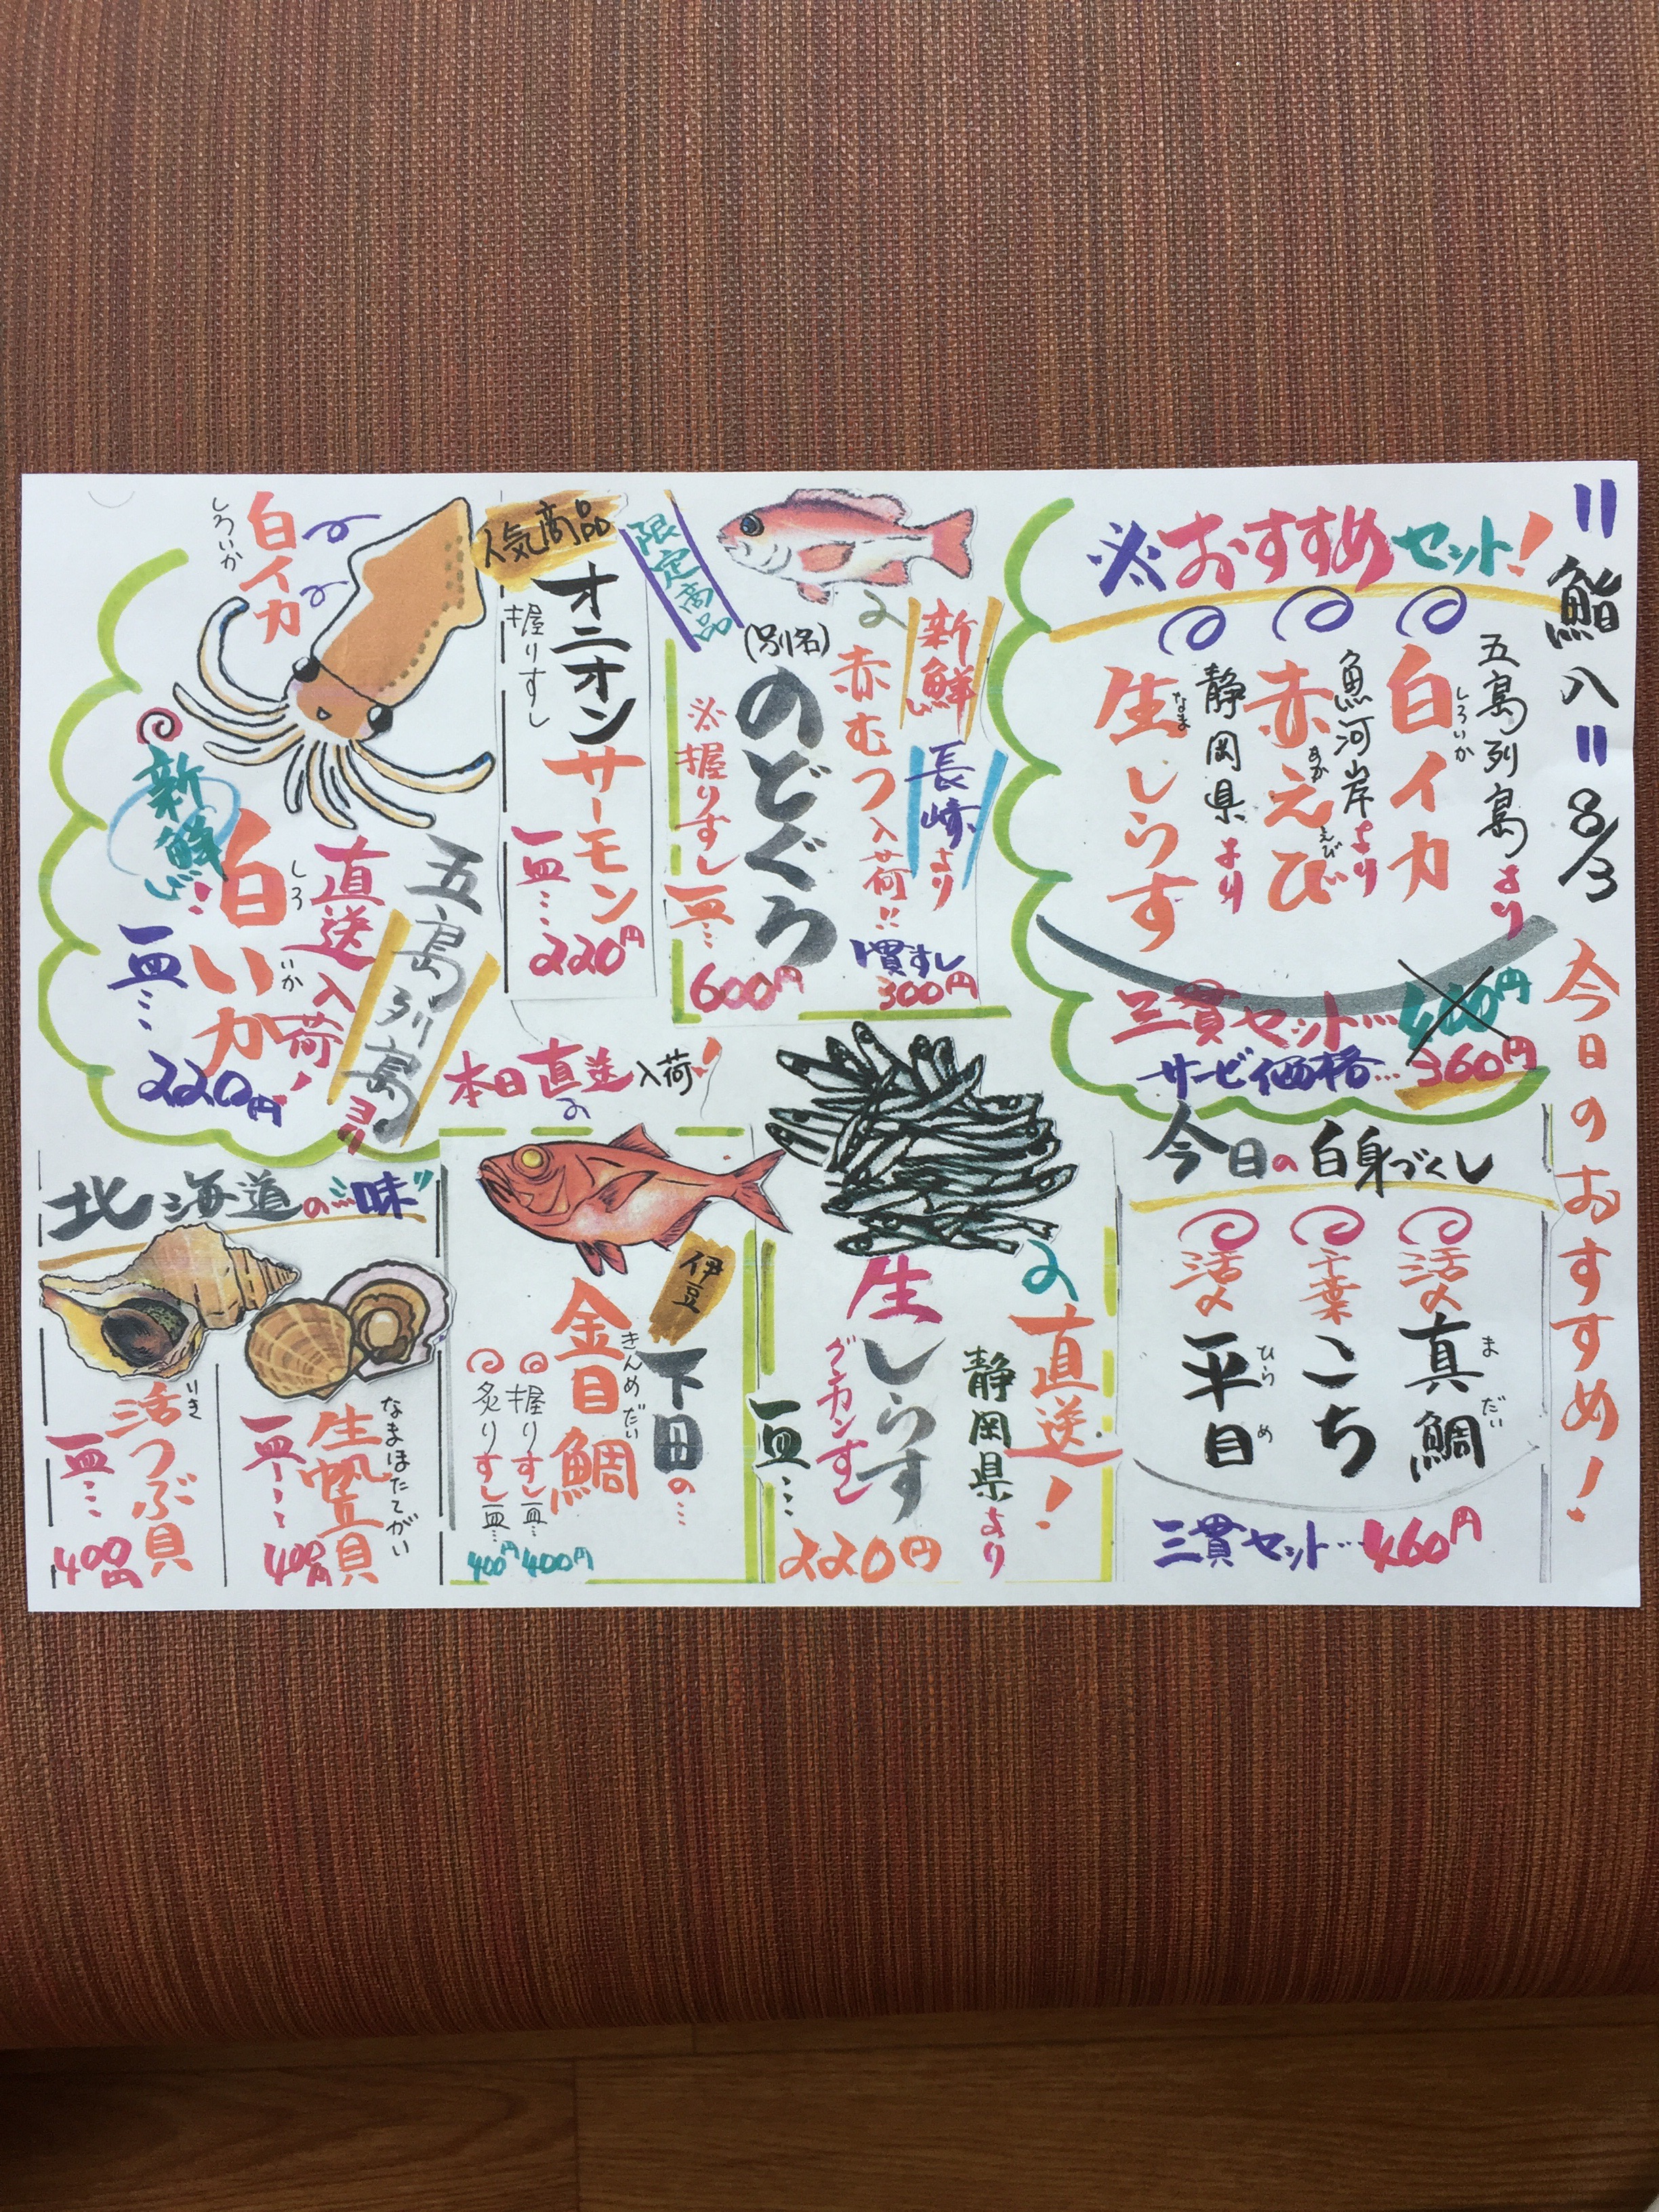 〃鮨八〃 8/3 今日のおすすめ!
※おすすめセット!
五島列島より
白イカ
しろいか
魚河岸より
赤えび
あかえび
静岡県より
生しらす
なま
三貫セット…
サービ価格…360円
今日の白身づくし
活〆
真鯛
まだい
千葉
こち
活〆
平目
ひらめ
三貫セット…460円
限定商品
新鮮
長崎より
赤むつ入荷!!
(別名)
のどぐろ
※握りすし一皿…
600円
一貫すし
300円
人気商品
オニオン
サーモン
握りすし
一皿…
220円
直送!
静岡県より
生しらす
グンカンすし
一皿…
220円
本日直送入荷!
伊豆
下田の…
金目鯛
きんめだい
握りすし一皿…400円
炙りすし一皿…400円
白イカ
しろいか
五島列島ヨリ
直送入荷!
新鮮!
白いか
しろいか
一皿…
220円
北海道の〃味〃
生帆立貝
なまほたてがい
一皿…
400円
活つぶ貝
いき
一皿…
400円